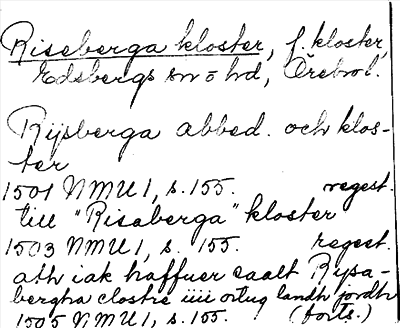 Riseberga kloster, f. kloster,
Edsbergs sn o hd, Örebro l.
Rijsberga abbed. och klos-
ter
1501 NMU 1, s. 155. regest.
till "Risaberga" kloster
1503 NMU 1, s. 155. regest.
ath iak haffuer saalt Rijsa-
bergha closter iiii ortug landh jordh
1505 NMU 1, s. 155. (forts.)